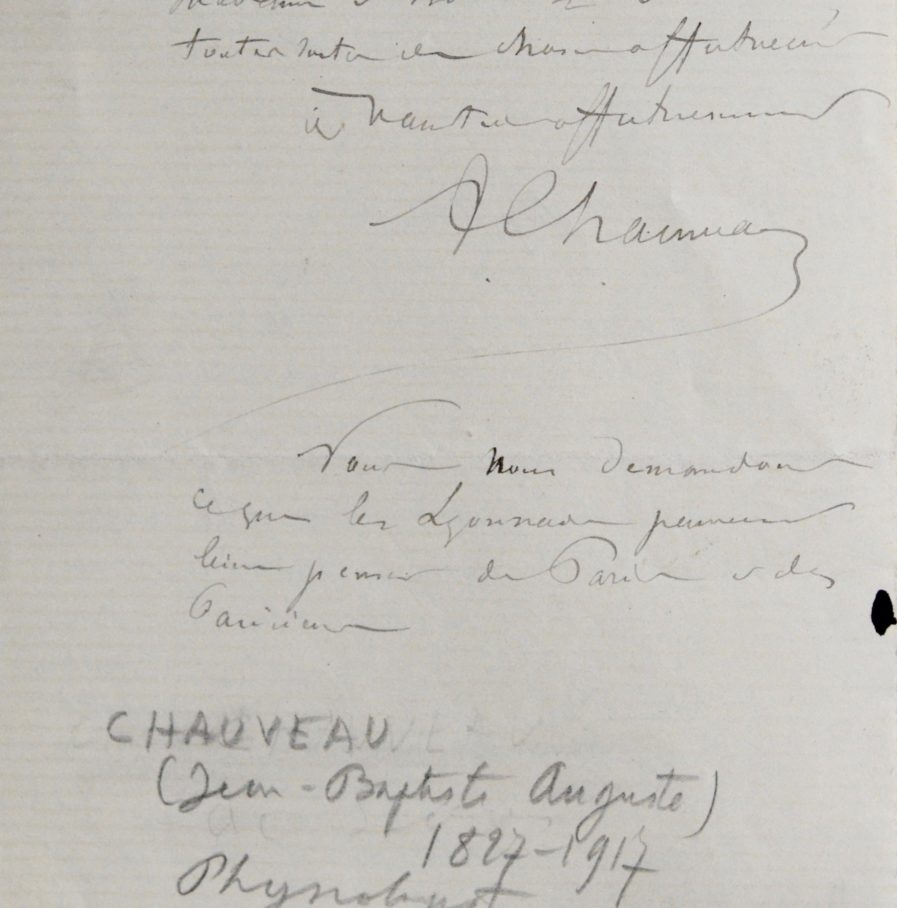 toutes sortes de choses affectueuses
à vous
A Chauveau
Vous nous demandons
ce que les Lyonnais peuvent
bien penser de Paris et des
Parisiens
CHAUVEAU
(Jean-Baptiste Auguste)
1827-1917
Physiologist